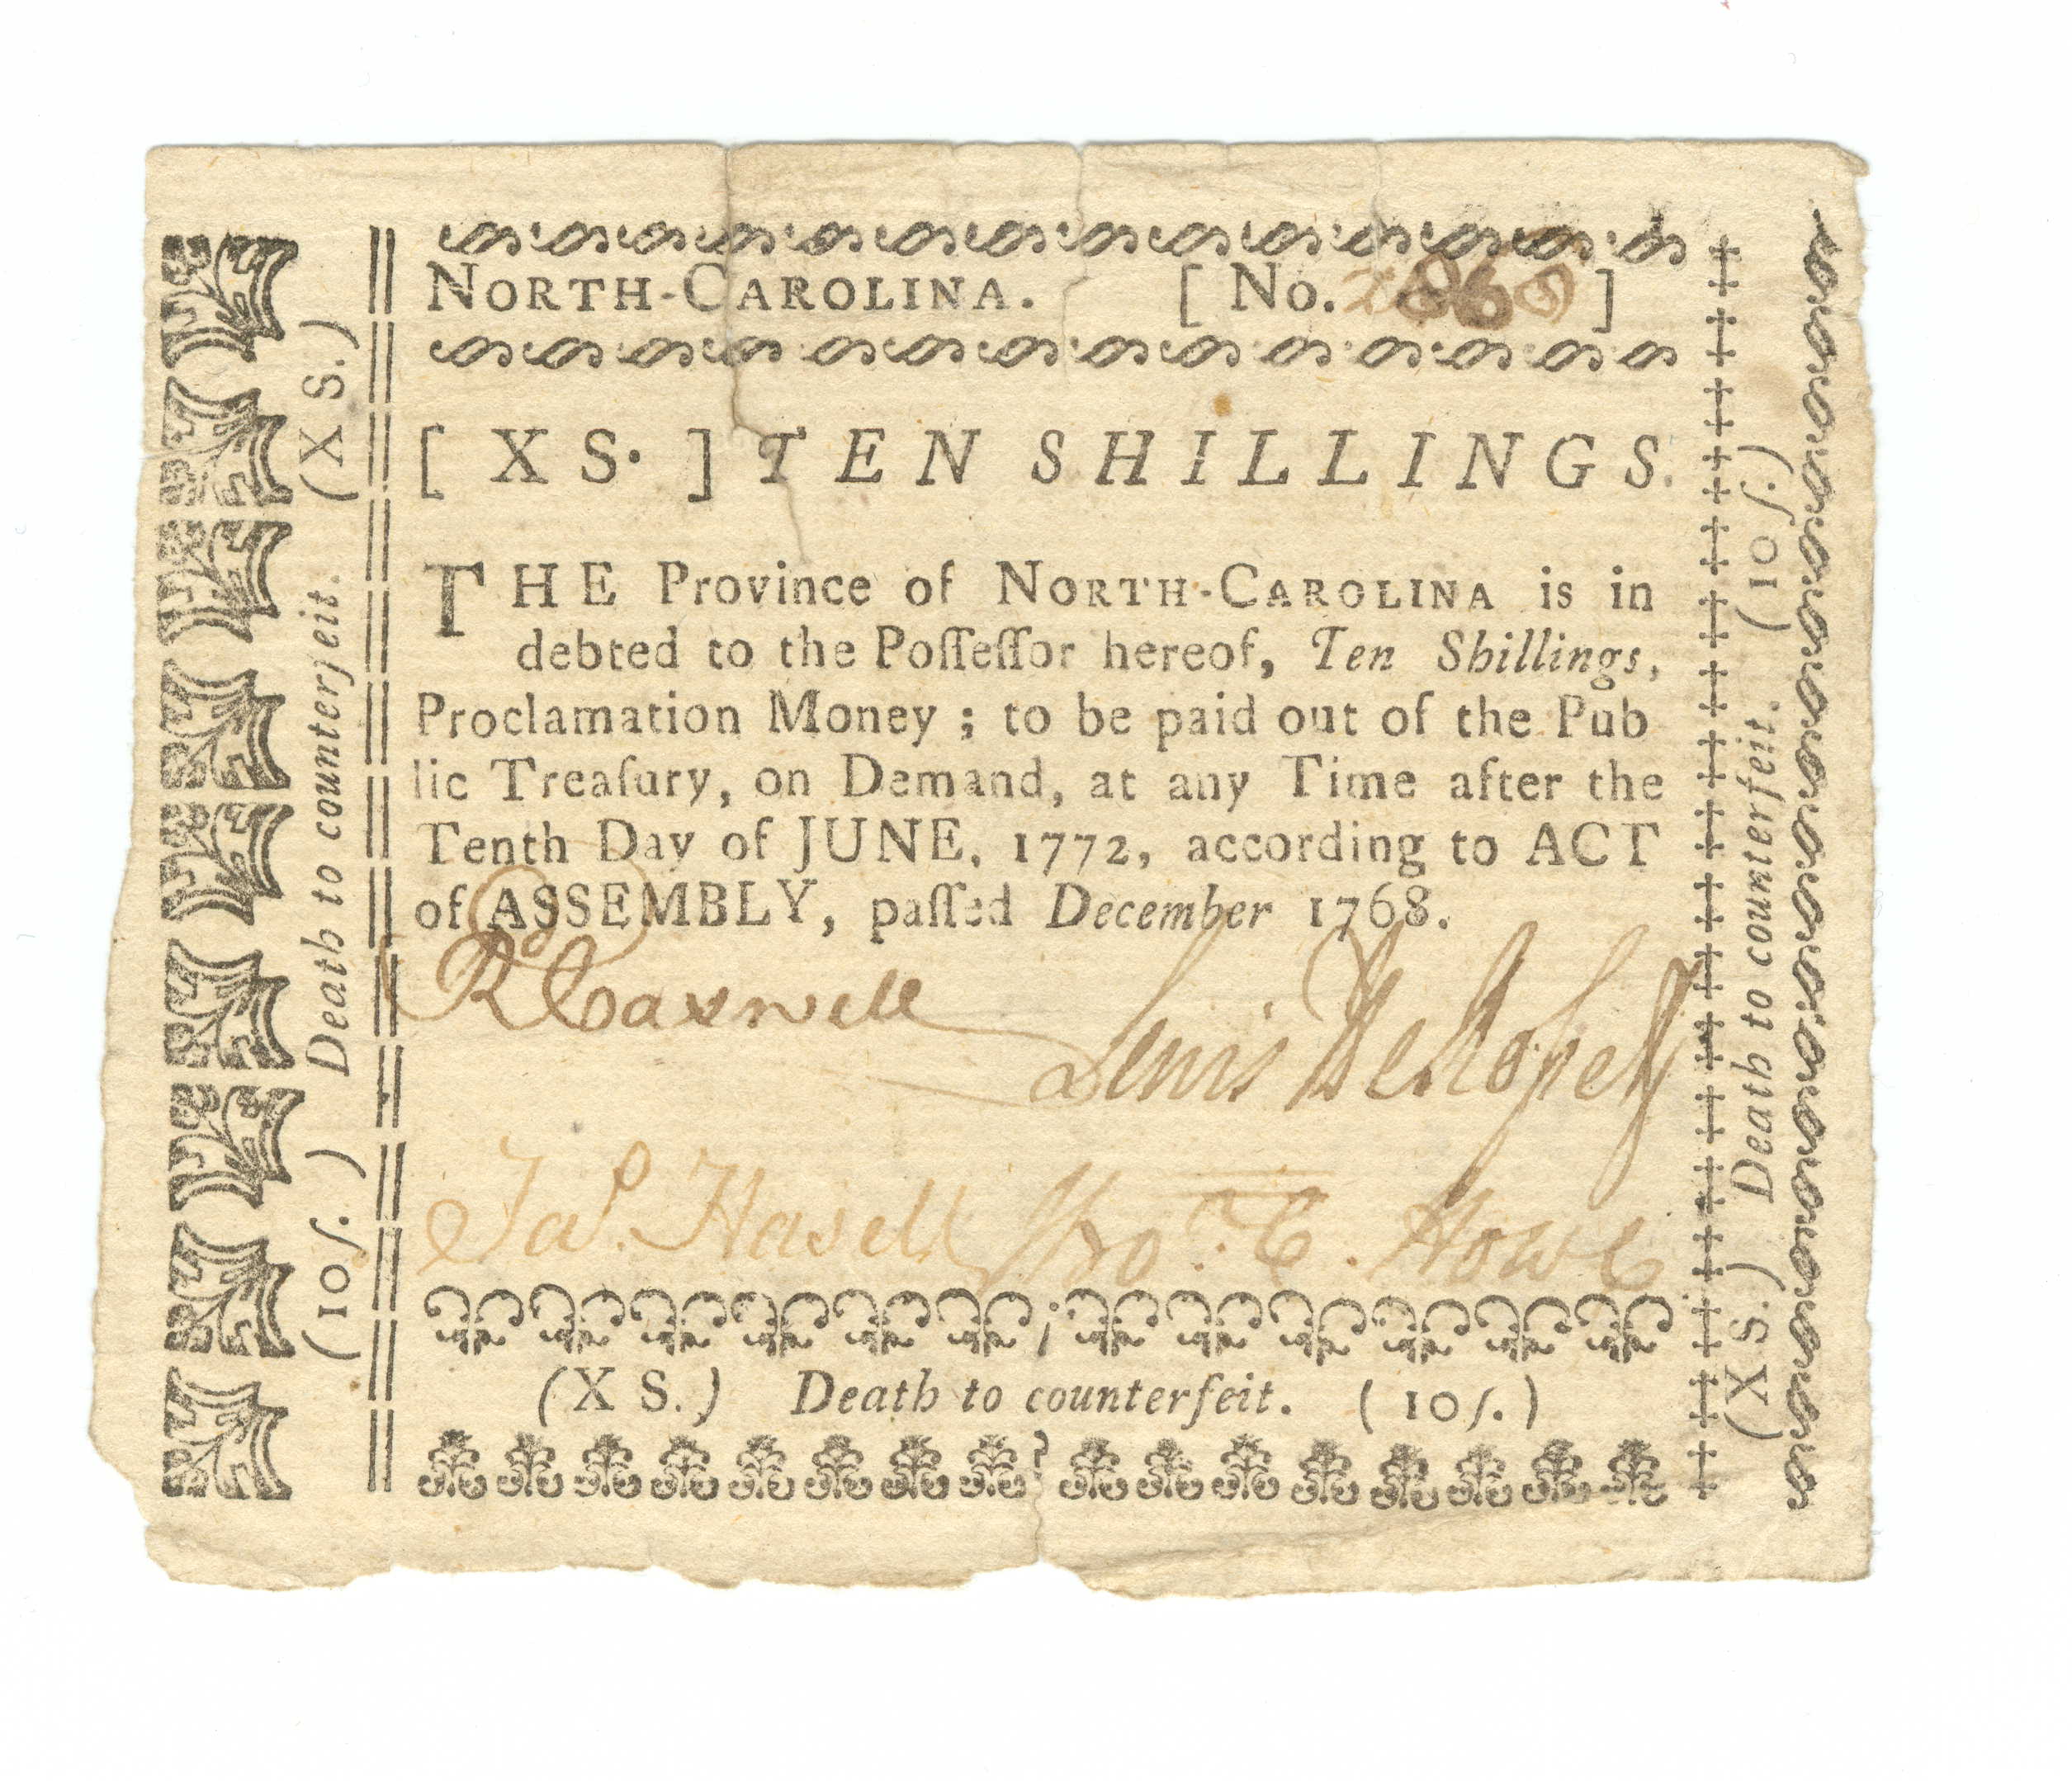 NORTH-CAROLINA. [ No. 2868 ]
[ X S. ] TEN SHILLINGS.
THE Province of NORTH-CAROLINA is in
debted to the Poſſeſſor hereof, Ten Shillings,
Proclamation Money ; to be paid out of the Pub
lic Treaſury, on Demand, at any Time after the
Tenth Day of JUNE, 1772, according to ACT
of ASSEMBLY, paſſed December 1768.
Rd Caswell
Lewis De Rosset
Jas. Hasell Thos. C. Howe
(X S.) Death to counterfeit. (10ſ.)
(10ſ.) Death to counterfeit. (X S.)
(X S.) Death to counterfeit. (10ſ.)